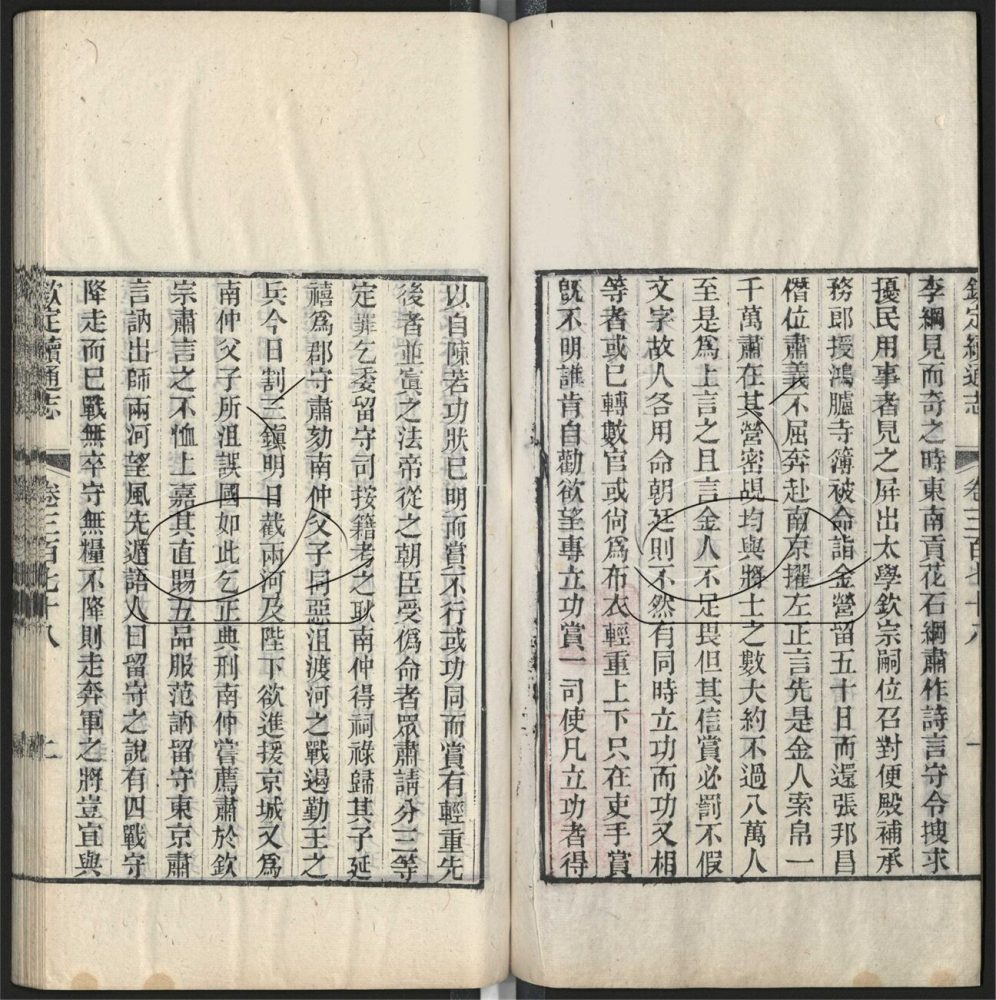 欽定續通志 卷三百七十八 一
李綱見而奇之時東南貢花石綱肅作詩言守令搜求
擾民用事者見之屏出太學欽宗嗣位召對便殿補承
務郎授鴻臚寺簿被命詣金營留五十日而還張邦昌
僭位肅義不屈奔赴南京擢左正言先是金人索帛一
千萬肅在其營密覘均與將士之數大約不過八萬人
至是爲上言之且言金人不足畏但其信賞必罰不假
文字故人各用命朝廷則不然有同時立功而功又相
等者或巳轉數官或尙爲布衣輕重上下只在吏手賞
旣不明誰肯自勸欲望專立功賞一司使凡立功者得
以自陳若功狀巳明而賞不行或功同而賞有輕重先
後者並寘之法帝從之朝臣受僞命者眾肅請分三等
定罪乞委留守司按籍考之耿南仲得祠祿歸其子延
禧爲郡守肅劾南仲父子同惡沮渡河之戰遏勤王之
兵今日割三鎭明日截兩河及陛下欲進援京城又爲
南仲父子所沮誤國如此乞正典刑南仲嘗薦肅於欽
宗肅言之不恤上嘉其直賜五品服范訥留守東京肅
言訥出師兩河望風先遁語人曰留守之說有四戰守
降走而巳戰無卒守無糧不降則走奔軍之將豈宜與
欽定續通志 卷三百七十八